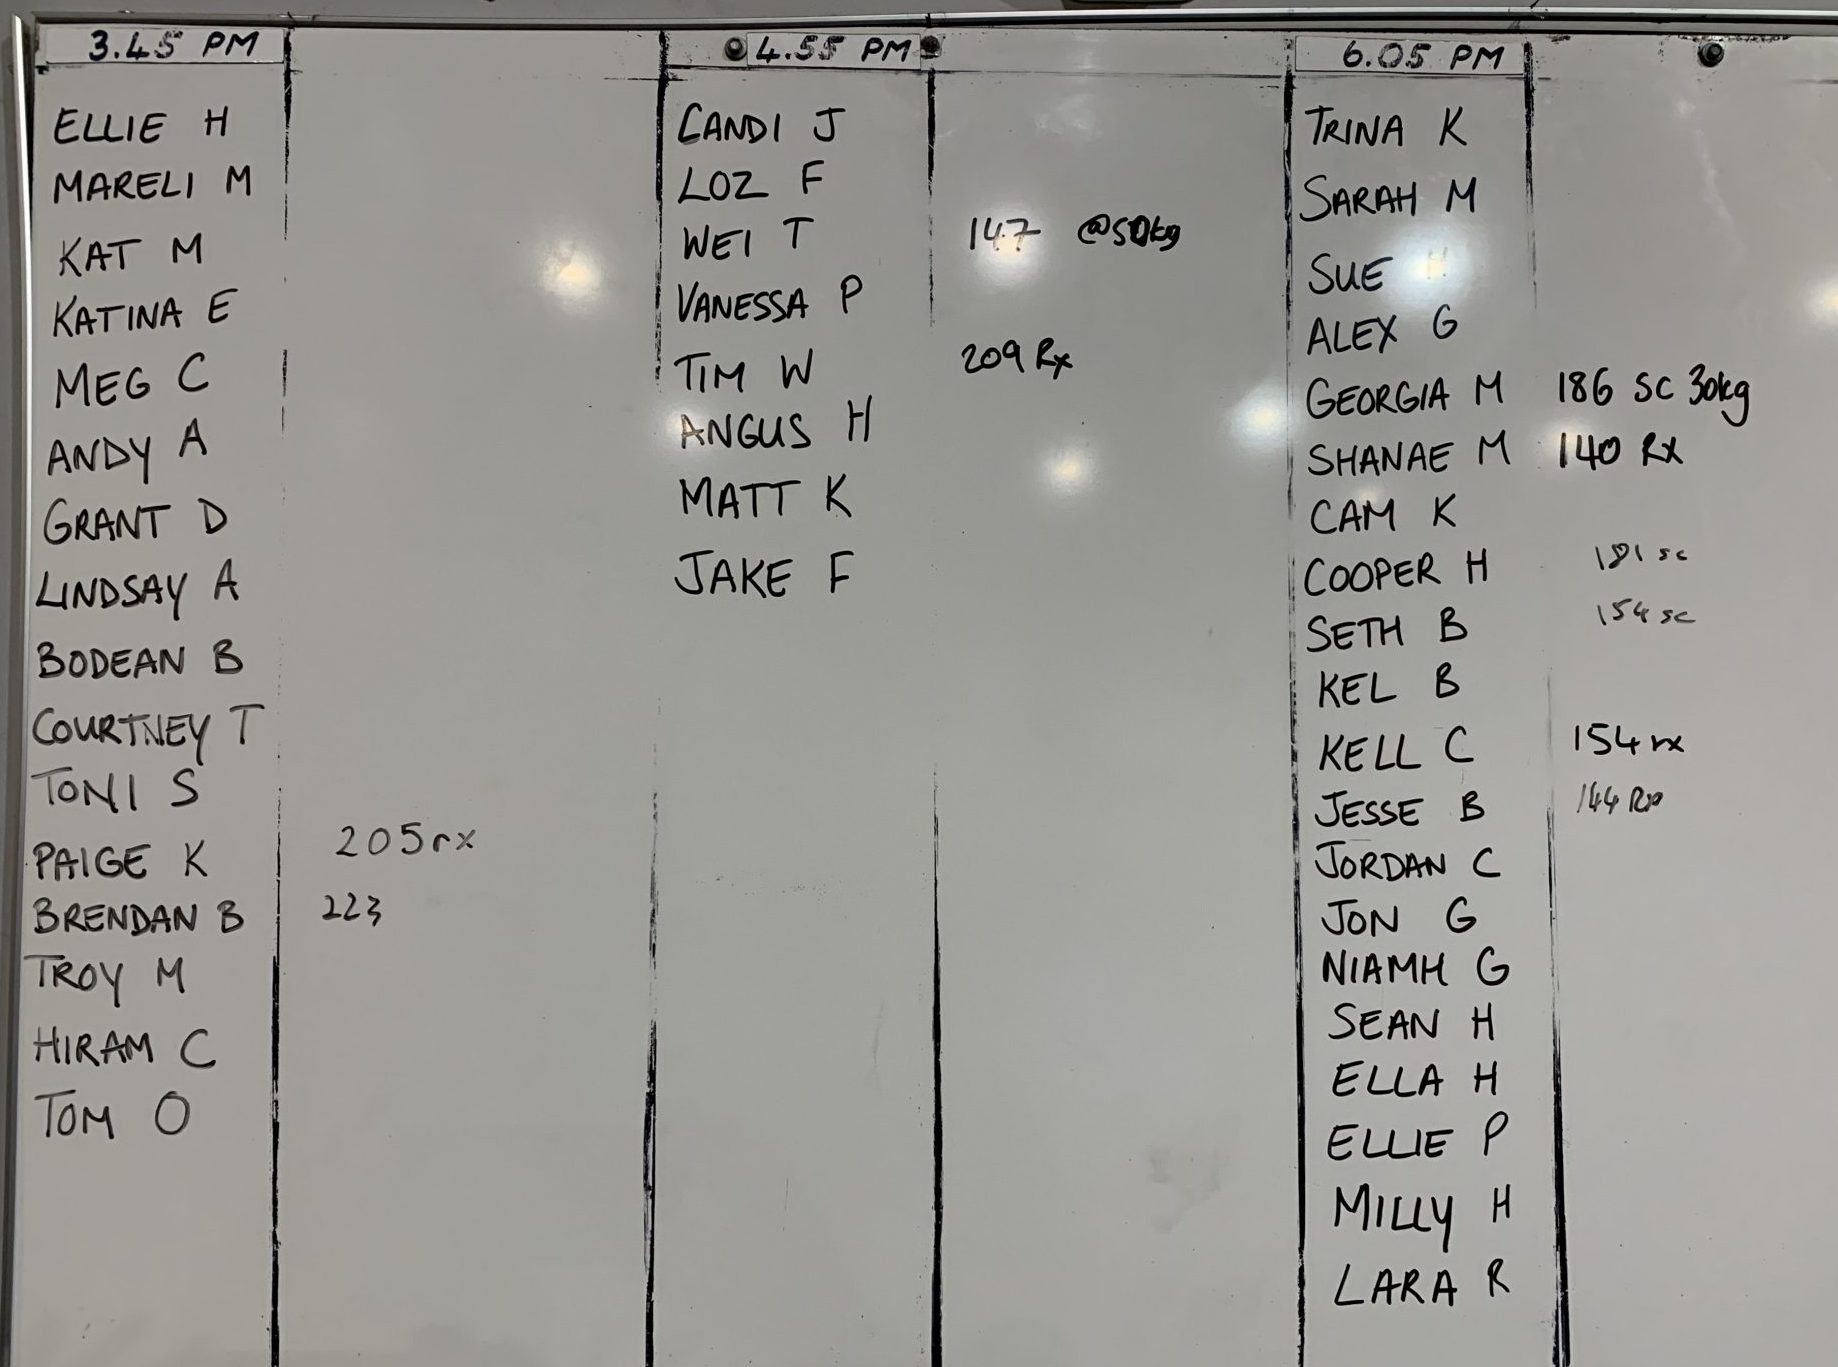 3.45 PM
ELLIE H
MARELI M
KAT M
KATINA E
MEG C
ANDY A
GRANT D
LINDSAY A
BODEAN B
COURTNEY T
TONI S
PAIGE K 205rx
BRENDAN B 223
TROY M
HIRAM C
TOM O
4.55 PM
CANDI J
LOZ F
WEI T 147 @50kg
VANESSA P
TIM W 209 Rx
ANGUS H
MATT K
JAKE F
6.05 PM
TRINA K
SARAH M
SUE H
ALEX G
GEORGIA M 186 SC 30kg
SHANAE M 140 RX
CAM K
COOPER H 181 sc
SETH B 154 sc
KEL B
KELL C 154 rx
JESSE B 144
JORDAN C
JON G
NIAMH G
SEAN H
ELLA H
ELLIE P
MILLY H
LARA R